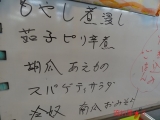 もやし煮浸し
茄子ピリ辛煮
胡瓜 あえもの
スパゲティサラダ
冷奴 南瓜おみそ汁